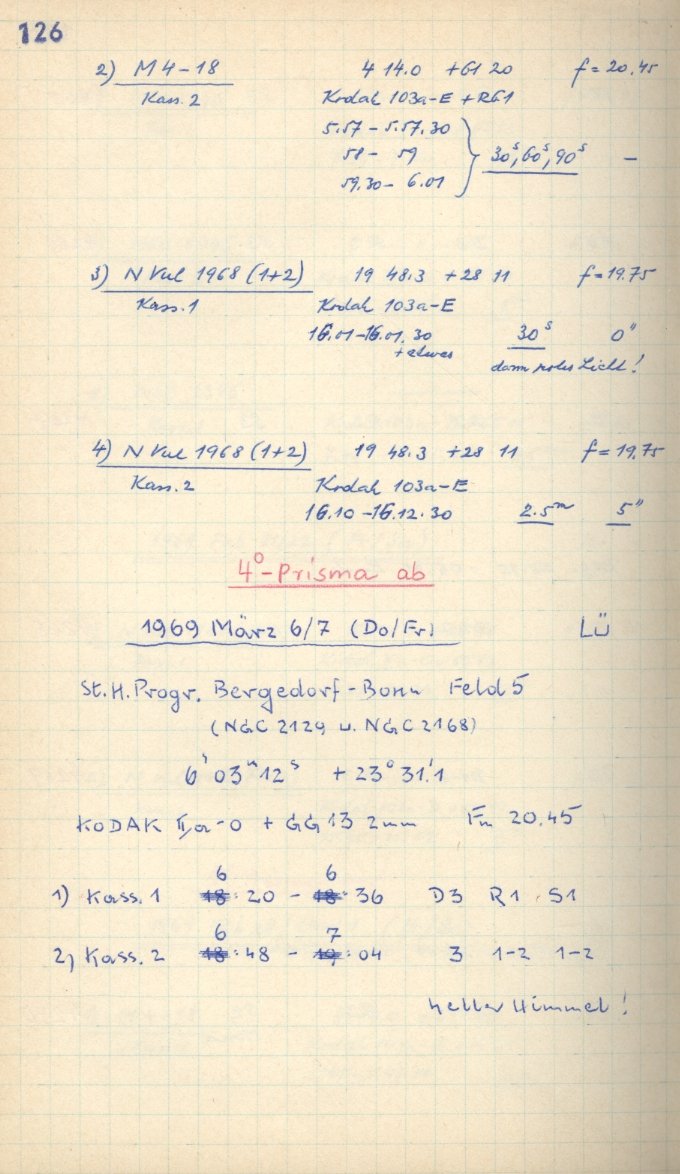 126
2) M 4-18 4 14.0 +61 20 f = 20.45
Kass. 2 Kodak 103a-E + RG1
5.57 - 5.57.30
58 - 59 30s, 60s, 90s -
59.30 - 6.01
3) N Vul 1968 (1+2) 19 48.3 +28 11 f = 19.75
Kass. 1 Kodak 103a-E
16.01-16.01.30 30s 0"
+ etwas
dann rotes Licht!
4) N Vul 1968 (1+2) 19 48.3 +28 11 f = 19.75
Kass. 2 Kodak 103a-E
16.10 - 16.12.30 2.5m 5"
4°-Prisma ab
1969 März 6/7 (Do/Fr) LÜ
St.H. Progr. Bergedorf-Bonn Feld 5
(NGC 2129 u. NGC 2168)
6h 03m 12s + 23° 31.'1
KODAK IIa-O + GG 13 2mm Fn 20.45
1) Kass. 1 6 18: 20 - 6 18: 36 D3 R1 S1
2) Kass. 2 6 18: 48 - 7 19: 04 3 1-2 1-2
heller Himmel!